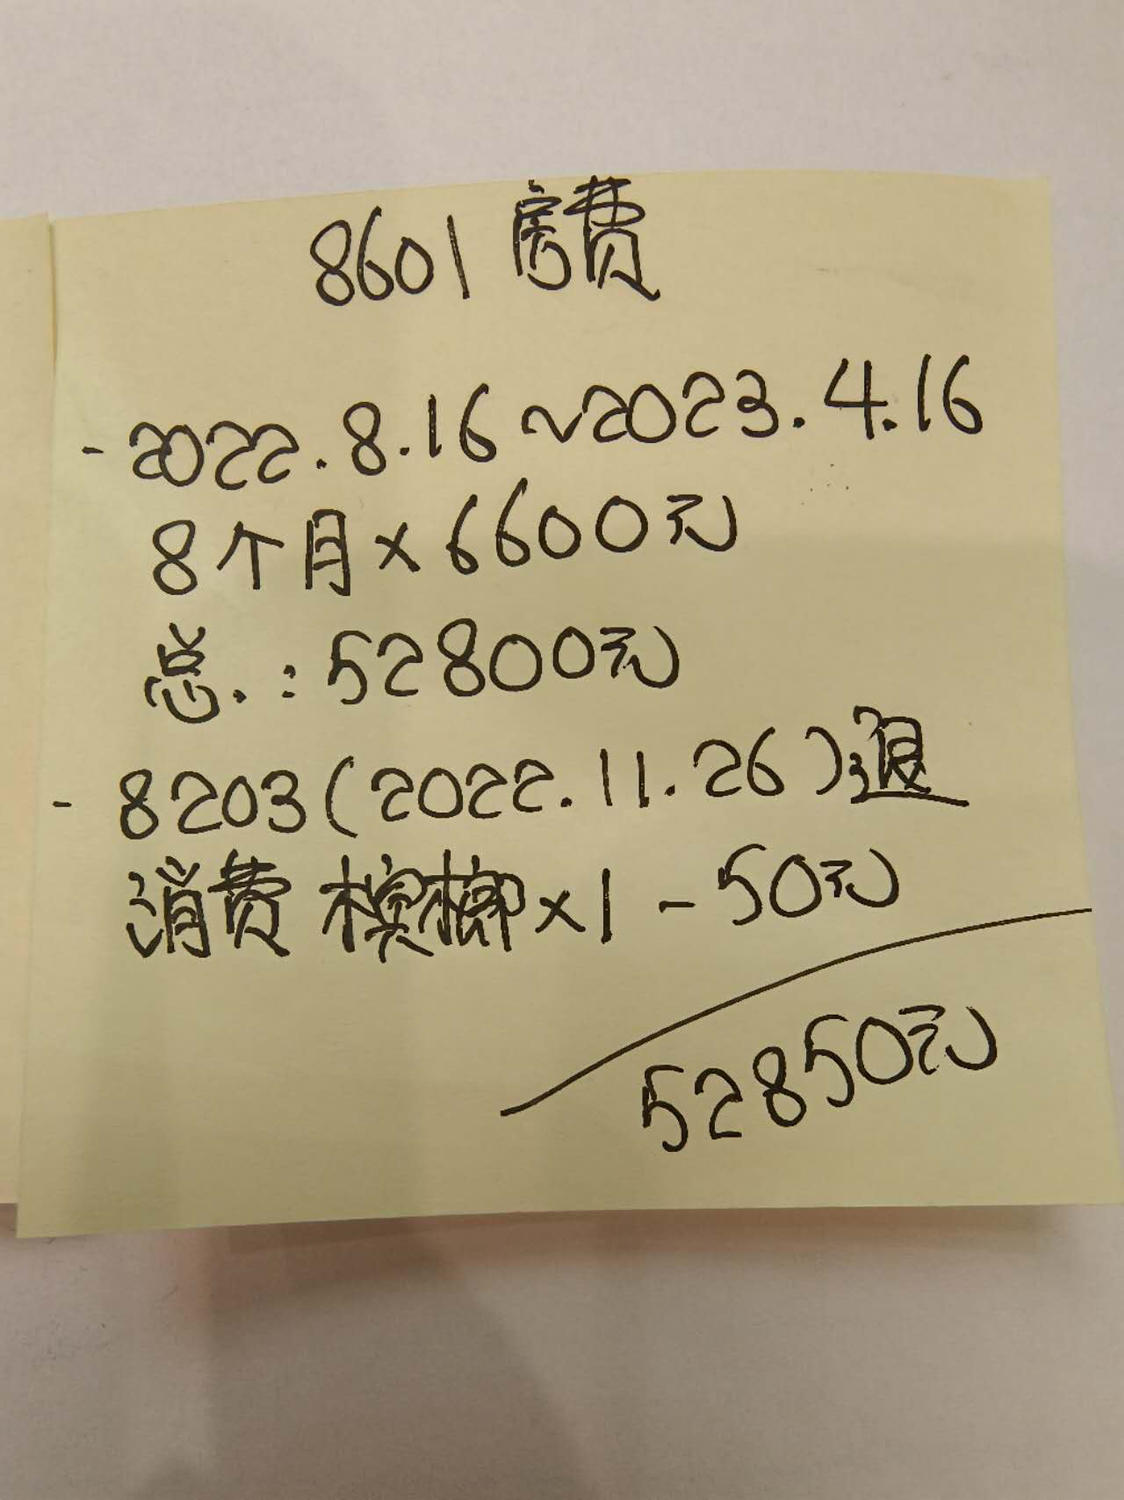 8601 房费
- 2022.8.16~2023.4.16
8个月×6600元
总.:52800元
- 8203(2022.11.26)退
消费 槟榔×1 - 50元
52850元